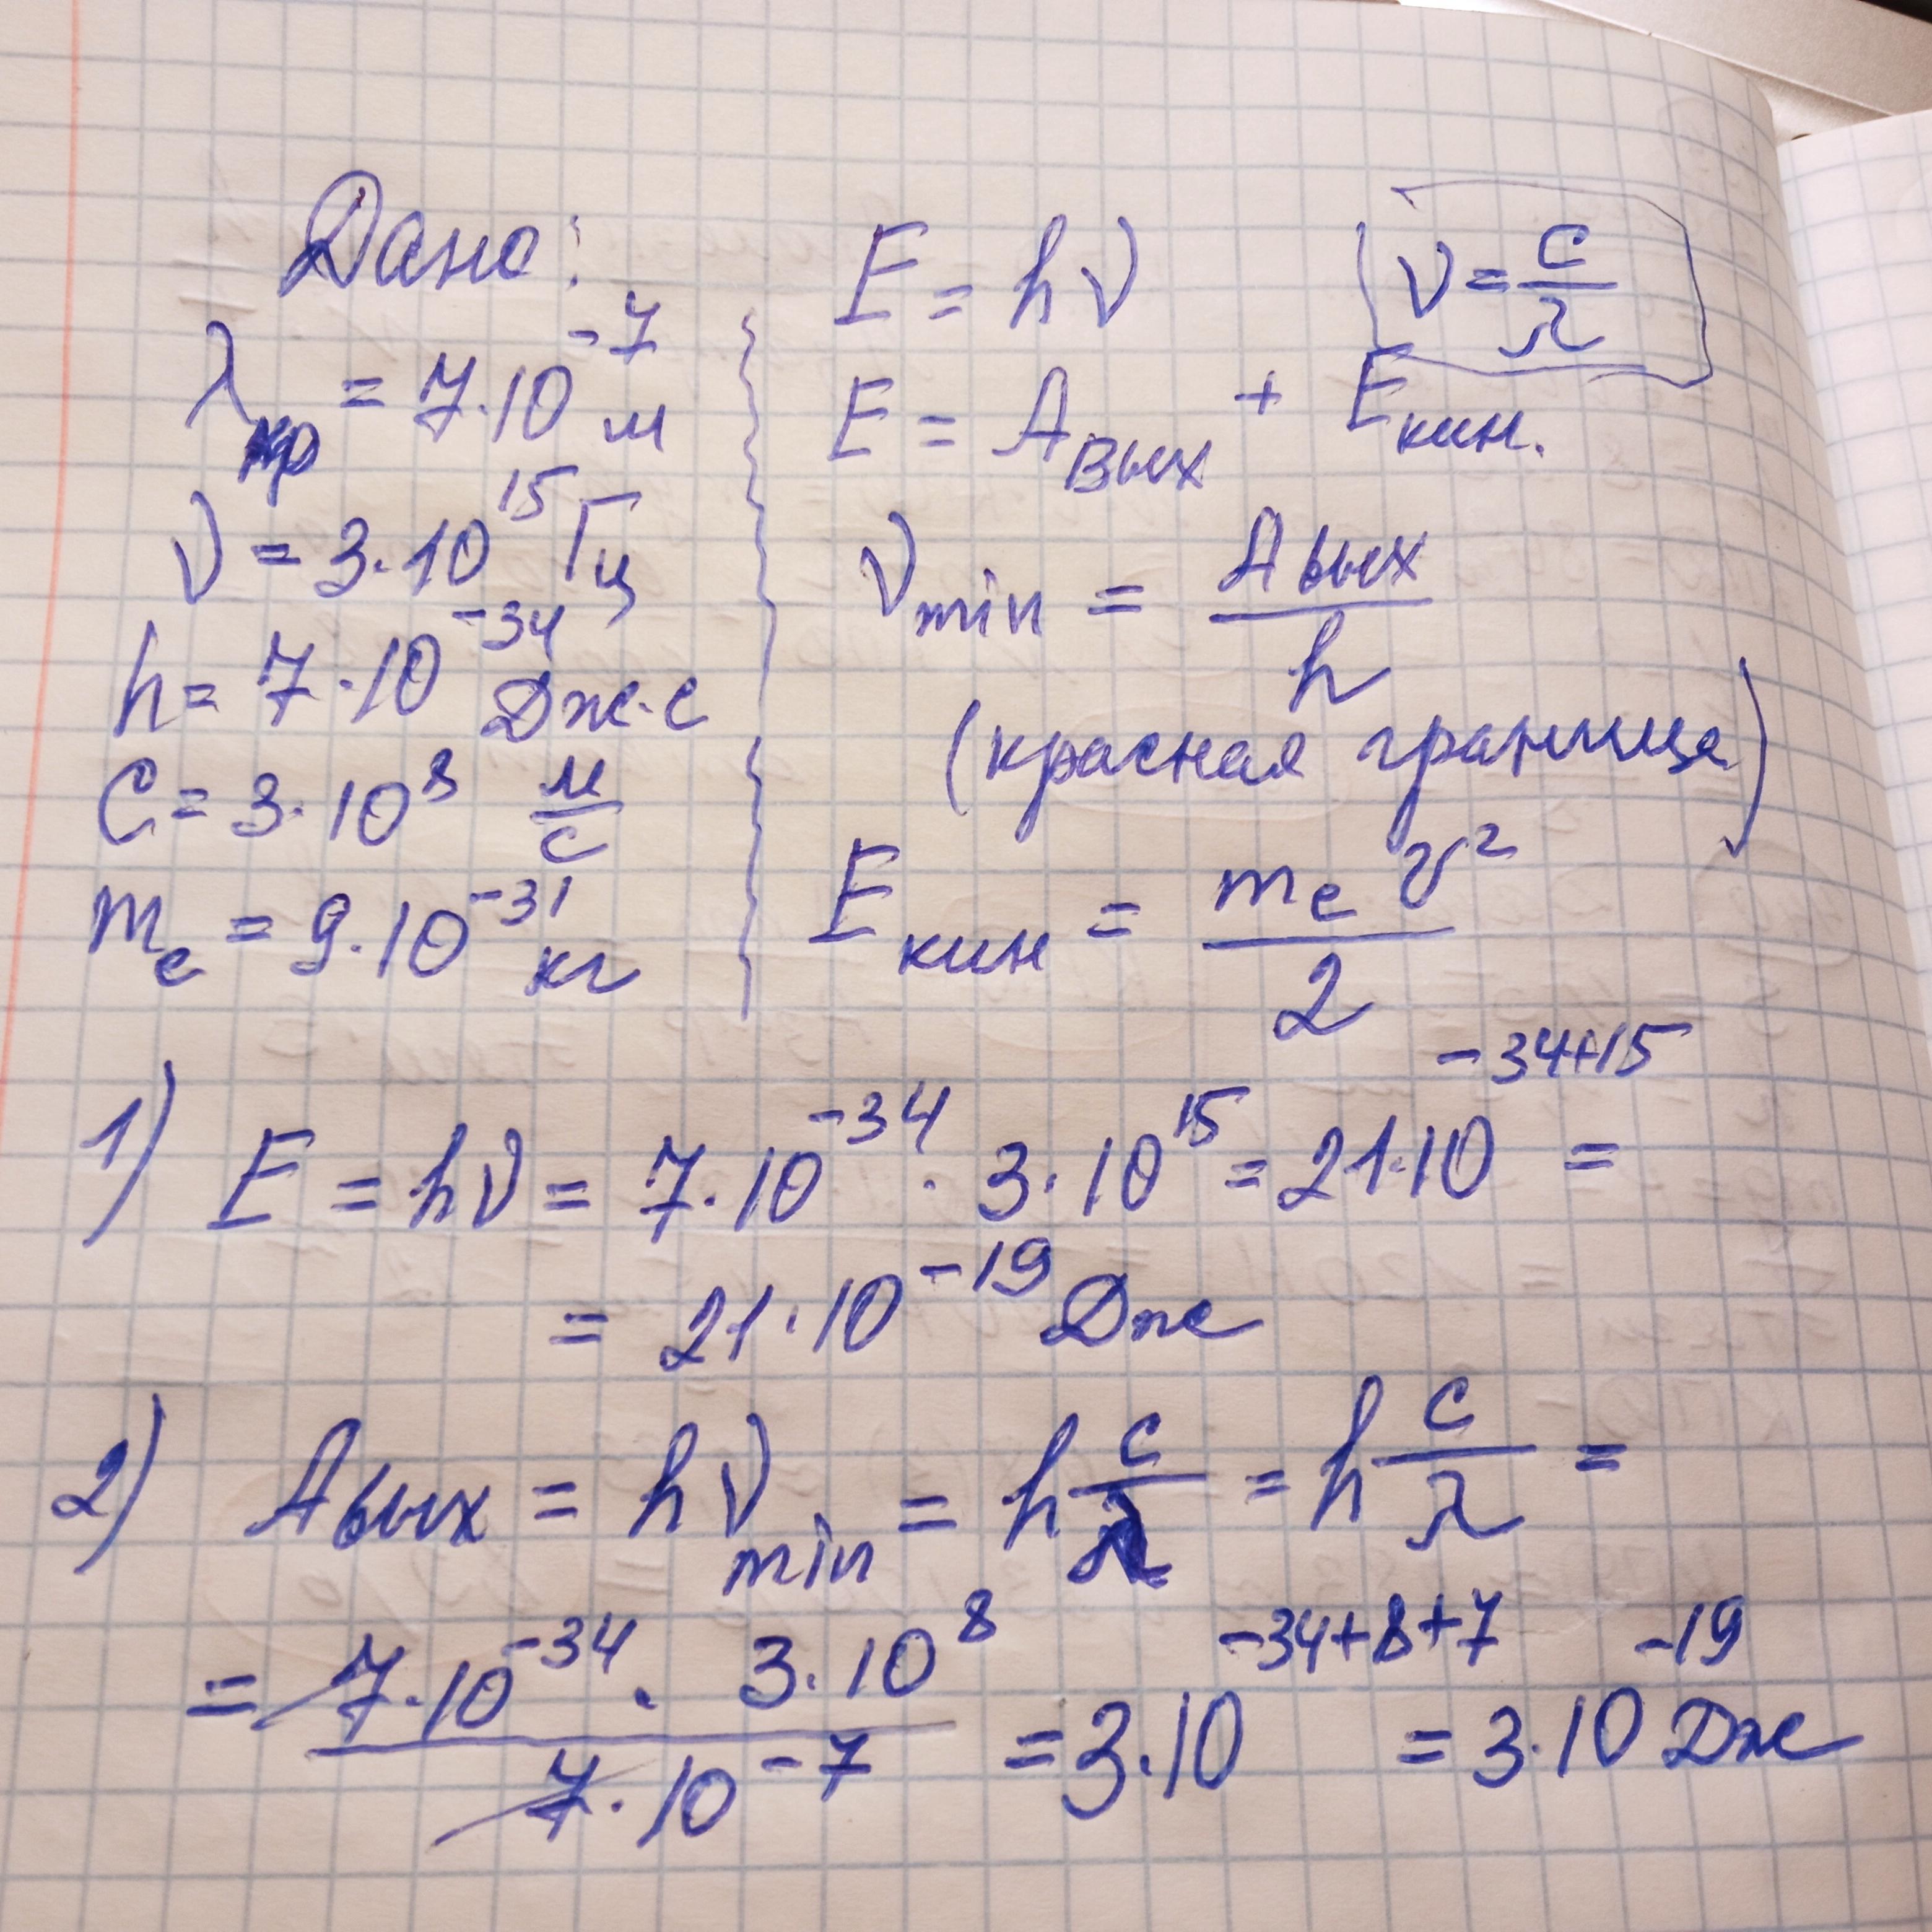 Дано:
λкр = 7·10⁻⁷ м
ν = 3·10¹⁵ Гц
h = 7·10⁻³⁴ Дж·с
C = 3·10⁸ м/с
mₑ = 9·10⁻³¹ кг
E = hν
ν = c/λ
E = Aвых + Eкин.
νmin = Aвых/h
(красная граница)
Eкин = mₑv²/2
1) E = hν = 7·10⁻³⁴ · 3·10¹⁵ = 21·10⁻³⁴⁺¹⁵ =
= 21·10⁻¹⁹ Дж
2) Aвых = hνmin = h c/λ = h c/λ =
= 7·10⁻³⁴ · 3·10⁸ / 7·10⁻⁷ = 3·10⁻³⁴⁺⁸⁺⁷ = 3·10⁻¹⁹ Дж